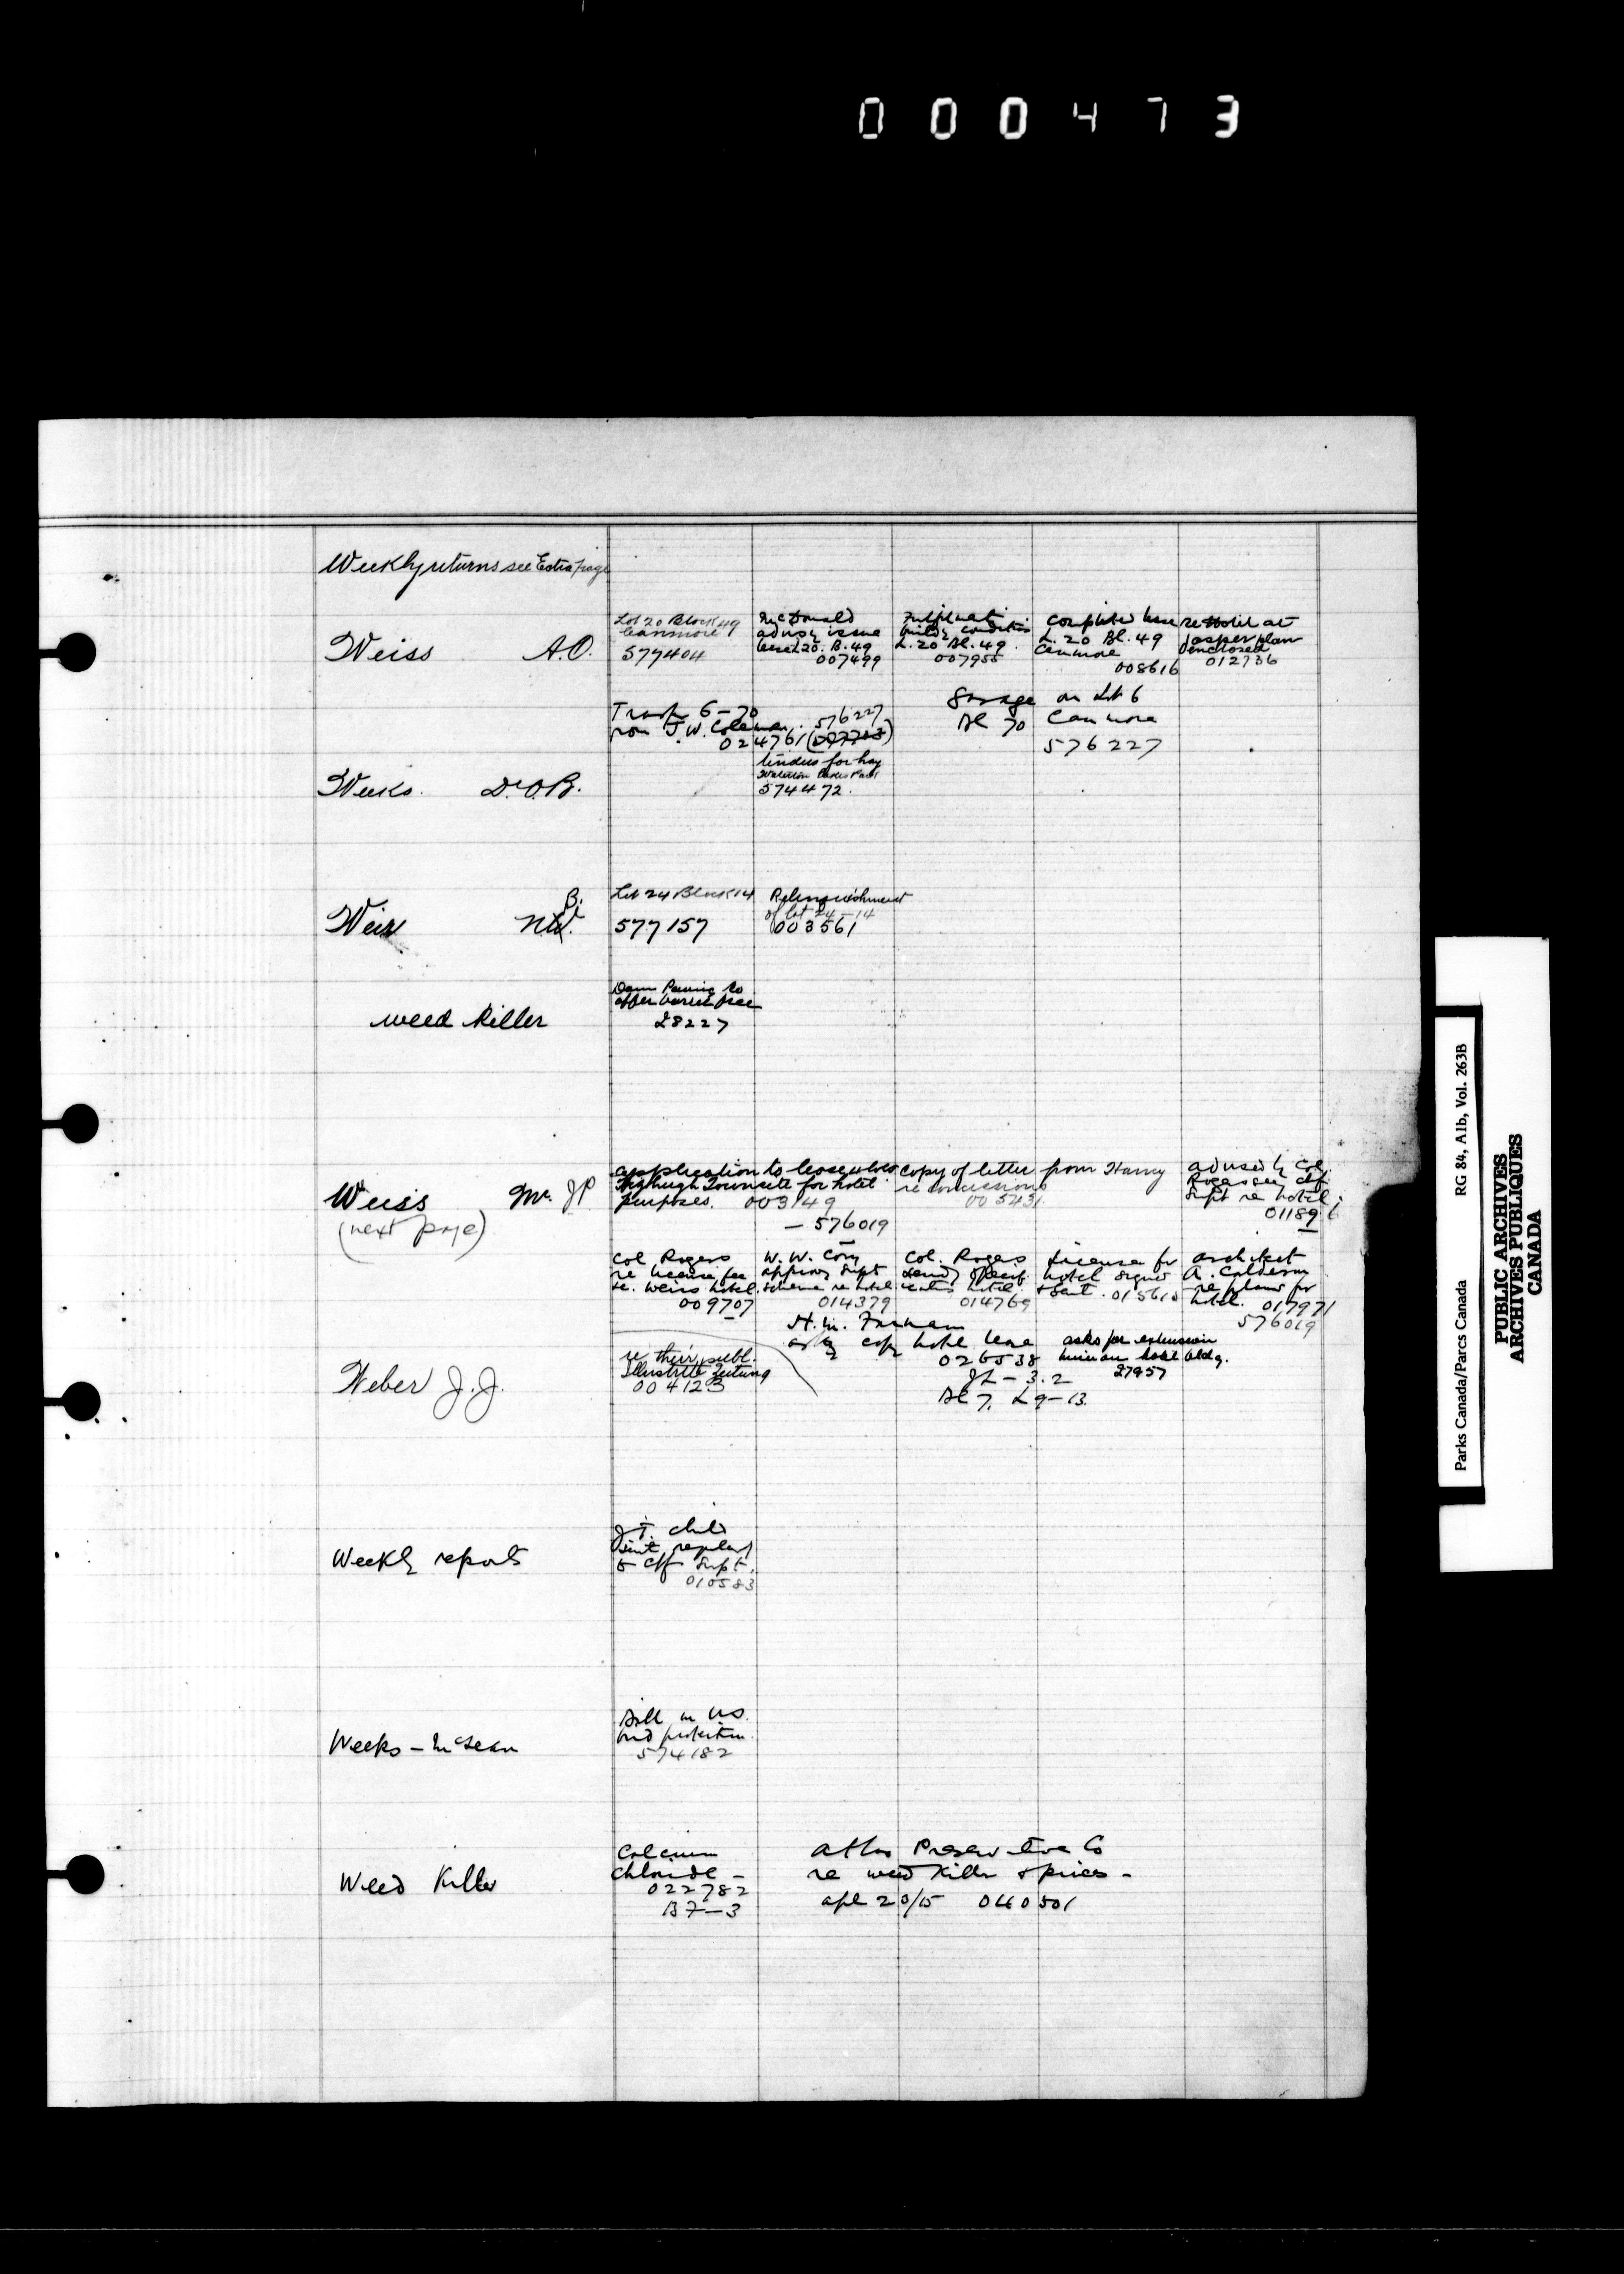 000473
Weekly returns see Extra page
Weiss A.O.
Lot 20 Block 49
Canmore
577404
McDonald
advisg issue
lease L20. B.49
007499
Fulfilment
buildg condition
L. 20 Bl. 49.
007955
Completed lease
L. 20 Bl. 49
Canmore
008616
re Hotel at
Jasper plan
enclosed
012736
Transfr 6-70
from J.W. Coleman. 576227
024761
Garage on Lot 6
Bl 70 Canmore
576227
Weeks. D.O.B.
tenders for hay
Waterton Lakes Park
574472.
Weir N.B.
Lot 24 Block 14
577157
Relinquishment
of lot 24-14
003561
weed killer
Dom Paving Co
offer barrel free
28227
Weiss Mr. J P
(next page)
application to lease
Fitzhugh Townsite for hotel
purposes. 003149
- 576019
copy of letter from Harvey
re concessions
005431
advised by Col.
Rogers
Supt re hotel.
01189
Col Rogers
re license fee
re. Weiss hotel.
009707
W. W. Cory
approvg Supt
scheme re hotel
014379
Col. Rogers
sendg specif
ications hotel.
014769
License for
hotel signed
& sent. 015610
architect
A. Calderon
re plans for
hotel. 017971
576019
H. M. Farnham
askg copy hotel lease
026538
JL-3.2
Bl 7. L 9-13.
asks for extension
hotel bldg.
27957
Weber J.J.
re their publ.
Illustrite Zeitung
004123
Weekly reports
J T. Child
sent regularly
to Cf Supt.
010583
Weeks - McLean
Bill in U.S.
bird protection.
574182
Weed Killer
Calcium
Chloride -
022782
B 7-3
Atlas Preservative Co
re weed killer & prices -
apl 20/15 040501
Parks Canada/Parcs Canada RG 84, A1b, Vol. 263B
PUBLIC ARCHIVES
ARCHIVES PUBLIQUES
CANADA